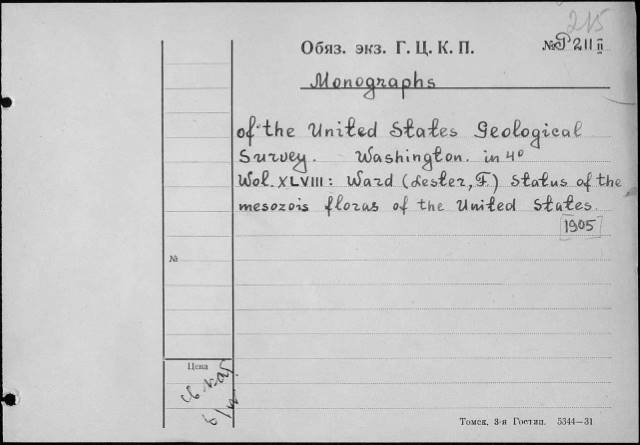 215
Обяз. экз. Г. Ц. К. П.
№ P 211 II
Monographs
of the United States Geological
Survey. Washington. in 4°
Wol. XLVIII: Ward (Lester, F.) Status of the
mesozois floras of the United States.
[1905]
№
Цена
Томск, 3-я Гостип. 5344—31